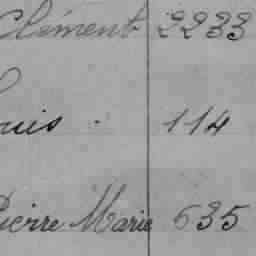 Clément 2233
ouis 114
Pierre Marie 635